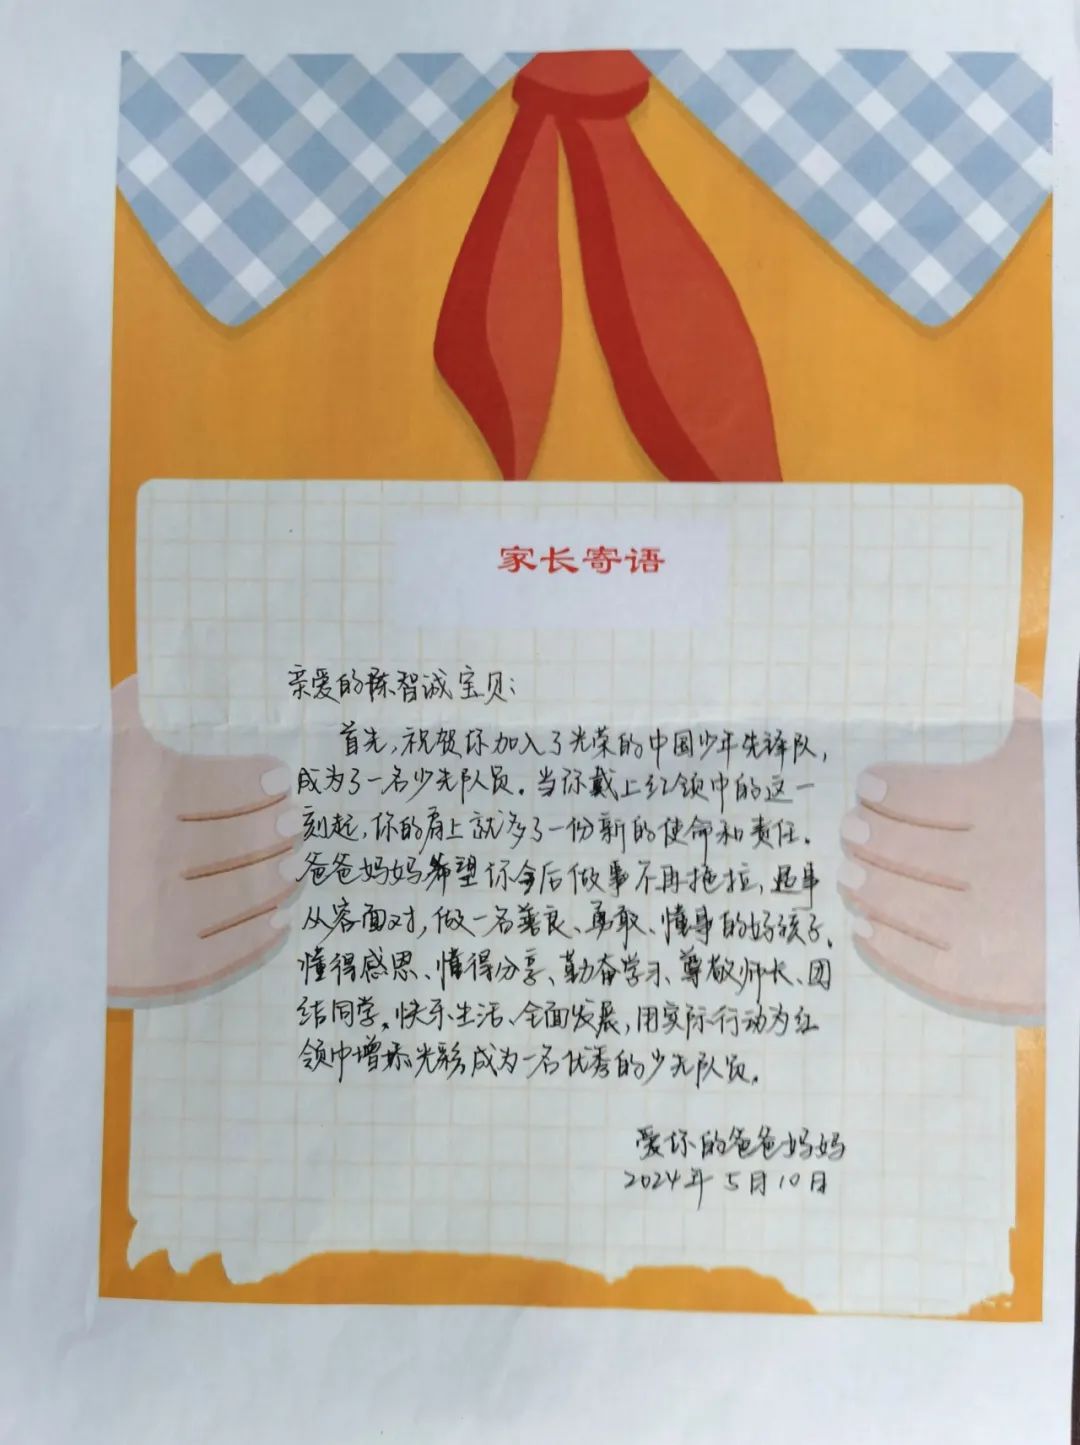 家长寄语
亲爱的陈智诚宝贝：
首先，祝贺你加入了光荣的中国少年先锋队，
成为了一名少先队员。当你戴上红领巾的这一
刻起，你的肩上就多了一份新的使命和责任。
爸爸妈妈希望你今后做事不再拖拉，遇事
从容面对，做一名善良、勇敢、懂事的好孩子。
懂得感恩、懂得分享、勤奋学习、尊敬师长、团
结同学，快乐生活、全面发展，用实际行动为红
领巾增添光彩成为一名优秀的少先队员。
爱你的爸爸妈妈
2024年5月10日